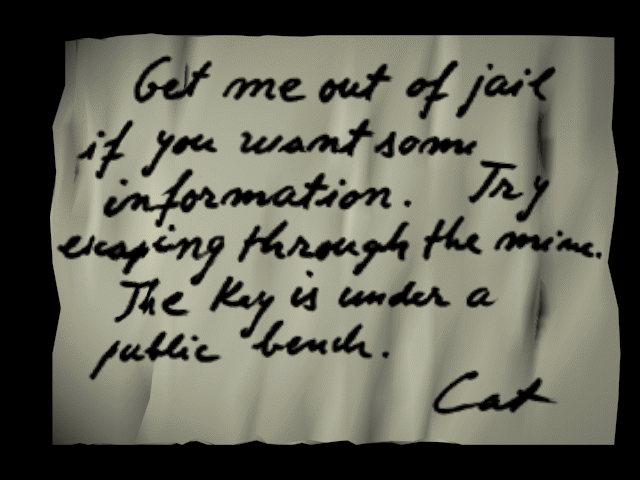 Get me out of jail
if you want some
information. Try
escaping through the mine.
The Key is under a
public bench.
Cat